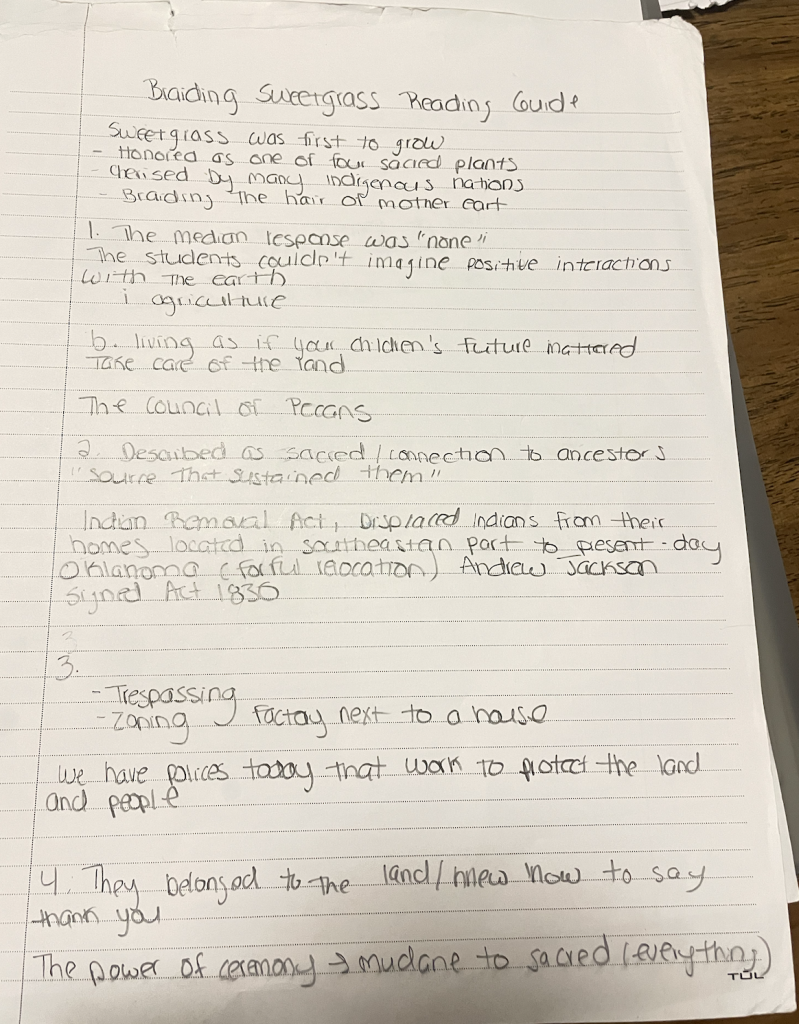 Braiding Sweetgrass Reading Guide
Sweetgrass was first to grow
- Honored as one of four sacred plants
- cherised by many indigenous nations
- Braiding the hair of mother eart
1. The median response was "none"
The students couldn't imagine positive interactions
with the earth
i agriculture
b. living as if your children's future mattered
Take care of the land
The Council of Pecans
2. Described as sacred / connection to ancestors
"source that sustained them"
Indian Removal Act, Displaced Indians from their
homes located in southeastern part to present-day
Oklahoma (forful relocation) Andrew Jackson
signed Act 1830
3
3.
- Trespassing
- Zoning factory next to a house
we have polices today that work to protect the land
and people
4. They belonged to the land / knew how to say
thank you
The power of ceremony → mudane to sacred (everything)
TŪL